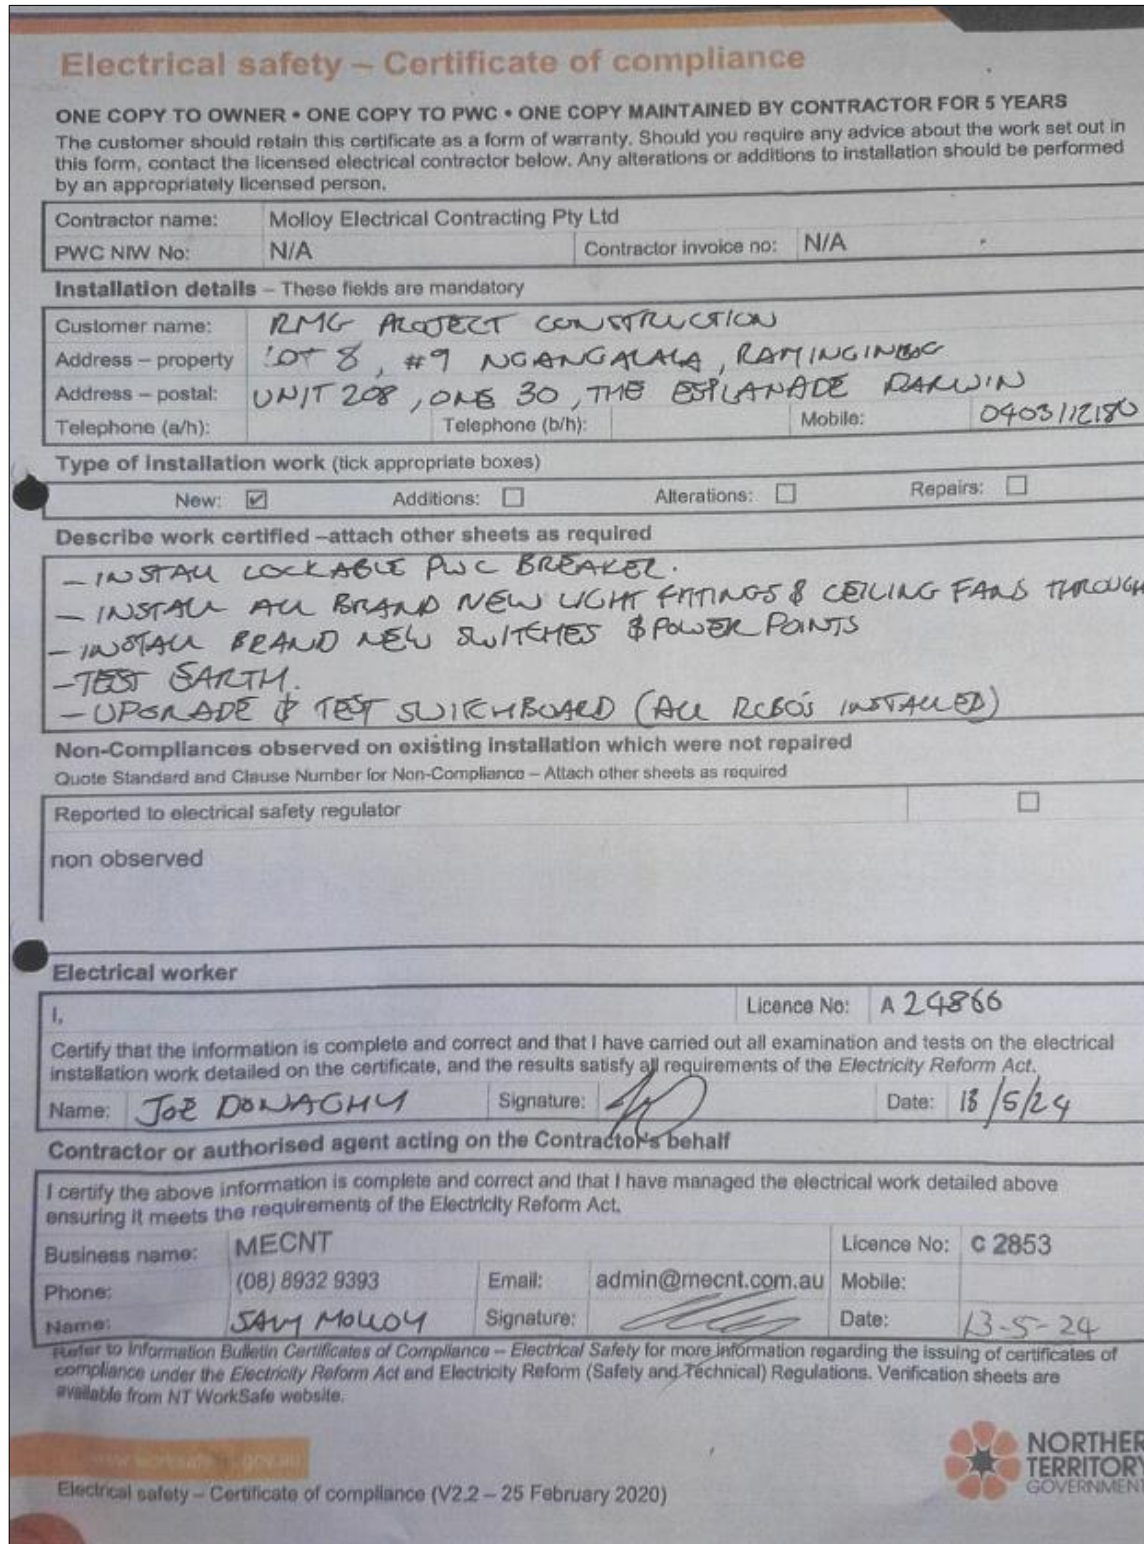 Electrical safety – Certificate of compliance
ONE COPY TO OWNER • ONE COPY TO PWC • ONE COPY MAINTAINED BY CONTRACTOR FOR 5 YEARS
The customer should retain this certificate as a form of warranty. Should you require any advice about the work set out in
this form, contact the licensed electrical contractor below. Any alterations or additions to installation should be performed
by an appropriately licensed person.
Contractor name: Molloy Electrical Contracting Pty Ltd
PWC NIW No: N/A Contractor invoice no: N/A
Installation details – These fields are mandatory
Customer name: RMG PROJECT CONSTRUCTION
Address – property LOT 8, #9 NGANGALALA,
Address – postal: UNIT 208, ONE 30, THE ESPLANADE DARWIN
Telephone (a/h): Telephone (b/h): Mobile: 0403112180
Type of installation work (tick appropriate boxes)
New: ☑ Additions: ☐ Alterations: ☐ Repairs: ☐
Describe work certified –attach other sheets as required
– INSTALL LOCKABLE PWC BREAKER.
– INSTALL ALL BRAND NEW LIGHT FITTINGS & CEILING FANS THROUGH
– INSTALL BRAND NEW SWITCHES & POWER POINTS
– TEST EARTH.
– UPGRADE & TEST SWITCHBOARD (ALL RCBO'S INSTALLED)
Non-Compliances observed on existing installation which were not repaired
Quote Standard and Clause Number for Non-Compliance – Attach other sheets as required
Reported to electrical safety regulator ☐
non observed
Electrical worker
I, Licence No: A 24866
Certify that the information is complete and correct and that I have carried out all examination and tests on the electrical
installation work detailed on the certificate, and the results satisfy all requirements of the Electricity Reform Act.
Name: JOE DONAGHY Signature: Date: 13/5/24
Contractor or authorised agent acting on the Contractor's behalf
I certify the above information is complete and correct and that I have managed the electrical work detailed above
ensuring it meets the requirements of the Electricity Reform Act.
Business name: MECNT Licence No: C 2853
Phone: (08) 8932 9393 Email: admin@mecnt.com.au Mobile:
Name: MOLLOY Signature: Date: 13-5-24
Refer to Information Bulletin Certificates of Compliance – Electrical Safety for more information regarding the issuing of certificates of
compliance under the Electricity Reform Act and Electricity Reform (Safety and Technical) Regulations. Verification sheets are
available from NT WorkSafe website.
NORTHER
TERRITORY
GOVERNMENT
Electrical safety – Certificate of compliance (V2.2 – 25 February 2020)